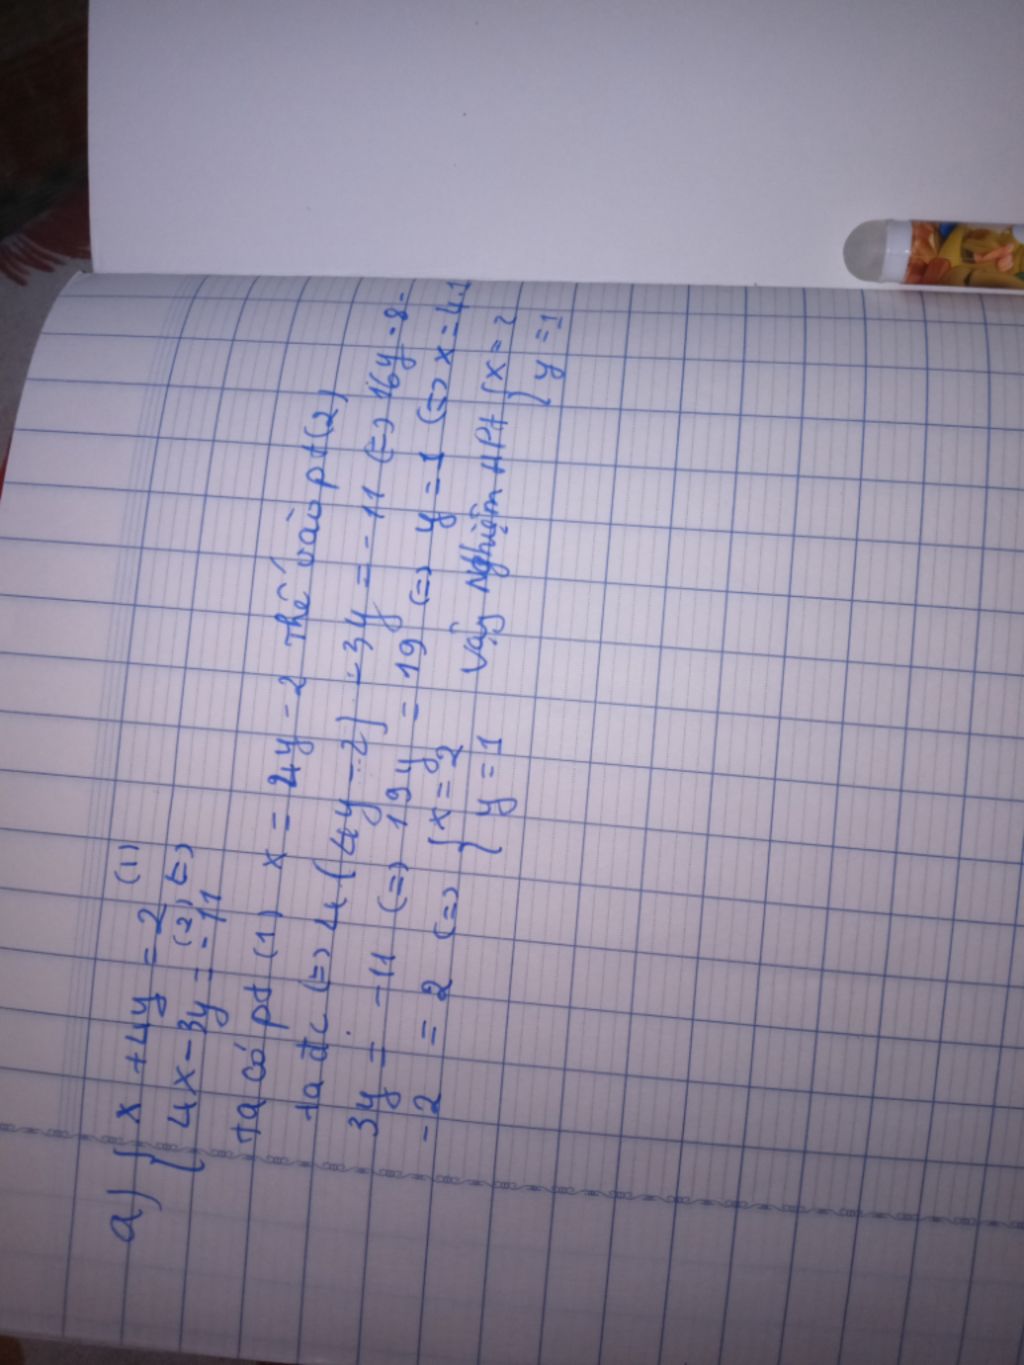 a) { x + 4y = 2 (1)
4x - 3y = -11 (2) (=)
ta có pt (1) x = 4y - 2 thế vào pt (2)
ta đc (=) 4(4y - 2) - 3y = -11 (=) 16y - 8 -
3y = -11 (=) 19y = 19 (=) y = 1 (=) x = 4.1
-2 = 2 (=) { x = 2 Vậy Nghiệm HPt { x = 2
y = 1 y = 1